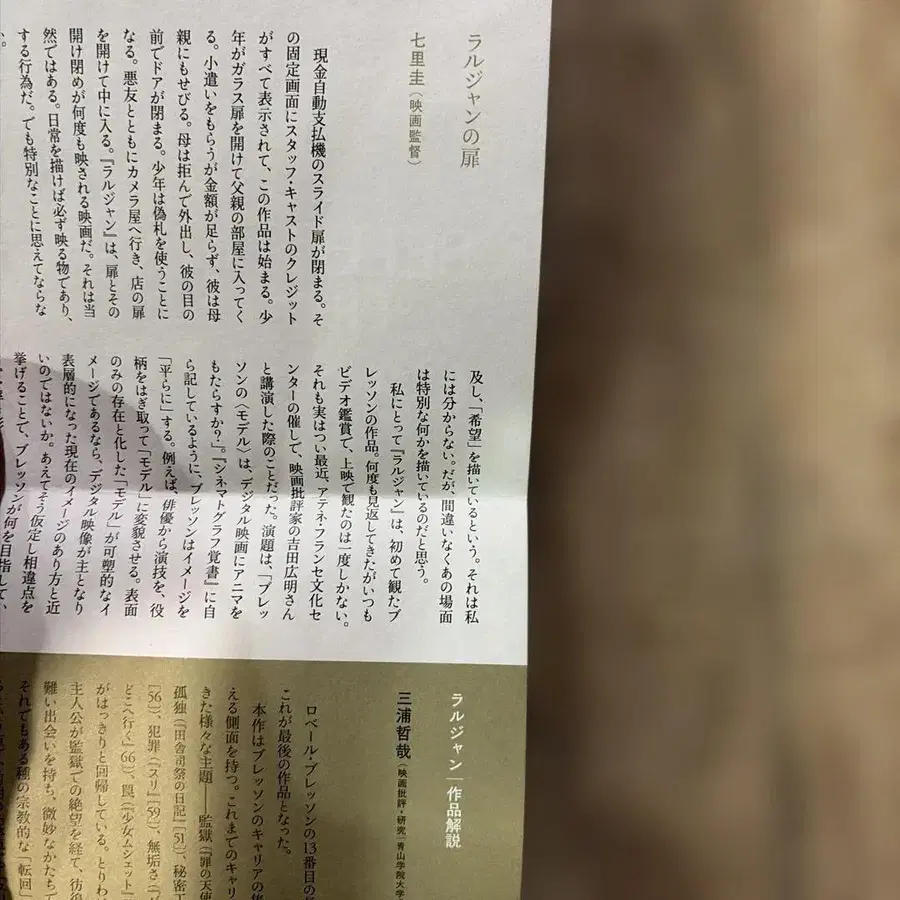 ラルジャンの扉
七里圭（映画監督）
現金自動支払機のスライド扉が閉まる。そ
の固定画面にスタッフ・キャストのクレジット
がすべて表示されて、この作品は始まる。少
年がガラス扉を開けて父親の部屋に入ってく
る。小遣いをもらうが金額が足らず、彼は母
親にもせびる。母は拒んで外出し、彼の目の
前でドアが閉まる。少年は偽札を使うことに
なる。悪友とともにカメラ屋へ行き、店の扉
を開けて中に入る。『ラルジャン』は、扉とその
開け閉めが何度も映される映画だ。それは当
然ではある。日常を描けば必ず映る物であり、
する行為だ。でも特別なことに思えてならな
及し、「希望」を描いているという。それは私
には分からない。だが、間違いなくあの場面
は特別な何かを描いているのだと思う。
私にとって『ラルジャン』は、初めて観たブ
レッソンの作品。何度も見返してきたがいつも
ビデオ鑑賞で、上映で観たのは一度しかない。
それも実はつい最近、アテネ・フランセ文化セ
ンターの催しで、映画批評家の吉田広明さん
と講演した際のことだった。演題は、「ブレッ
ソンの〈モデル〉は、デジタル映画にアニマを
もたらすか？」。『シネマトグラフ覚書』に自
ら記しているように、ブレッソンはイメージを
「平らに」する。例えば、俳優から演技を、役
柄をはぎ取って「モデル」に変貌させる。表面
のみの存在と化した「モデル」が可塑的なイ
メージであるなら、デジタル映像が主となり
表層的になった現在のイメージのあり方と近
いのではないか。あえてそう仮定し相違点を
挙げることで、ブレッソンが何を目指してい
ラルジャン｜作品解説
三浦哲哉（映画批評・研究／青山学院大学
ロベール・ブレッソンの13番目の
これが最後の作品となった。
本作はブレッソンのキャリアの
える側面を持つ。これまでのキャリ
きた様々な主題──監獄（『罪の天使
孤独（『田舎司祭の日記』［51］）、秘密
［56］）、犯罪（『スリ』［59］）、無垢さ（『
どこへ行く』66］）、罠（『少女ムシェット』
がはっきりと回帰している。とりわ
主人公が監獄での絶望を経て、彷徨
難い出会いを持ち、微妙なかたち
それでもある種の宗教的な「転回」